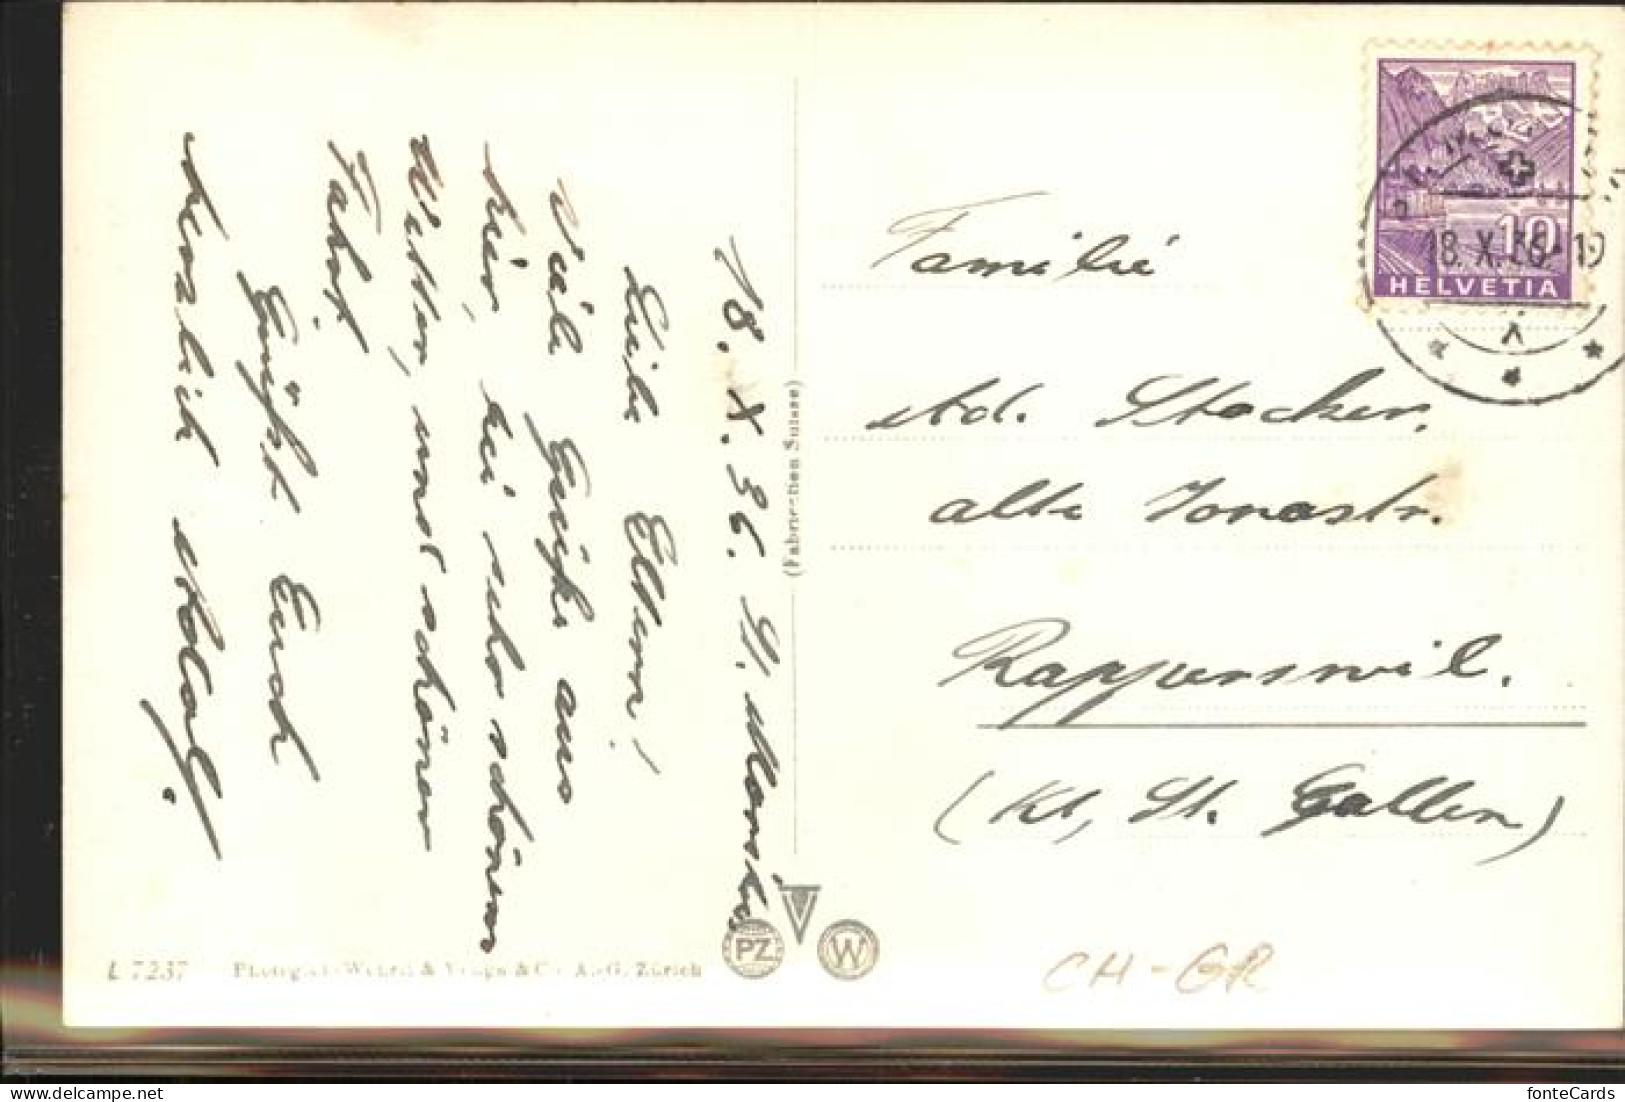 18. X. 36. St. Moritz
Liebe Eltern!
Viele Grüsse aus
hier, bei sehr schönem
Wetter, und schöner
Fahrt
Grüsst Euch
Herzlich Adolf.
Familie
Ad. Stocker,
alte Jonastr.
Rapperswil.
(Kt. St. Gallen)
HELVETIA
10
18. X. 36. 19
(Fabrication Suisse)
L 7237 Photoglob-Wehrli & Vouga & Co. A.-G. Zürich
PZ
W
CH-GR
fonteCards